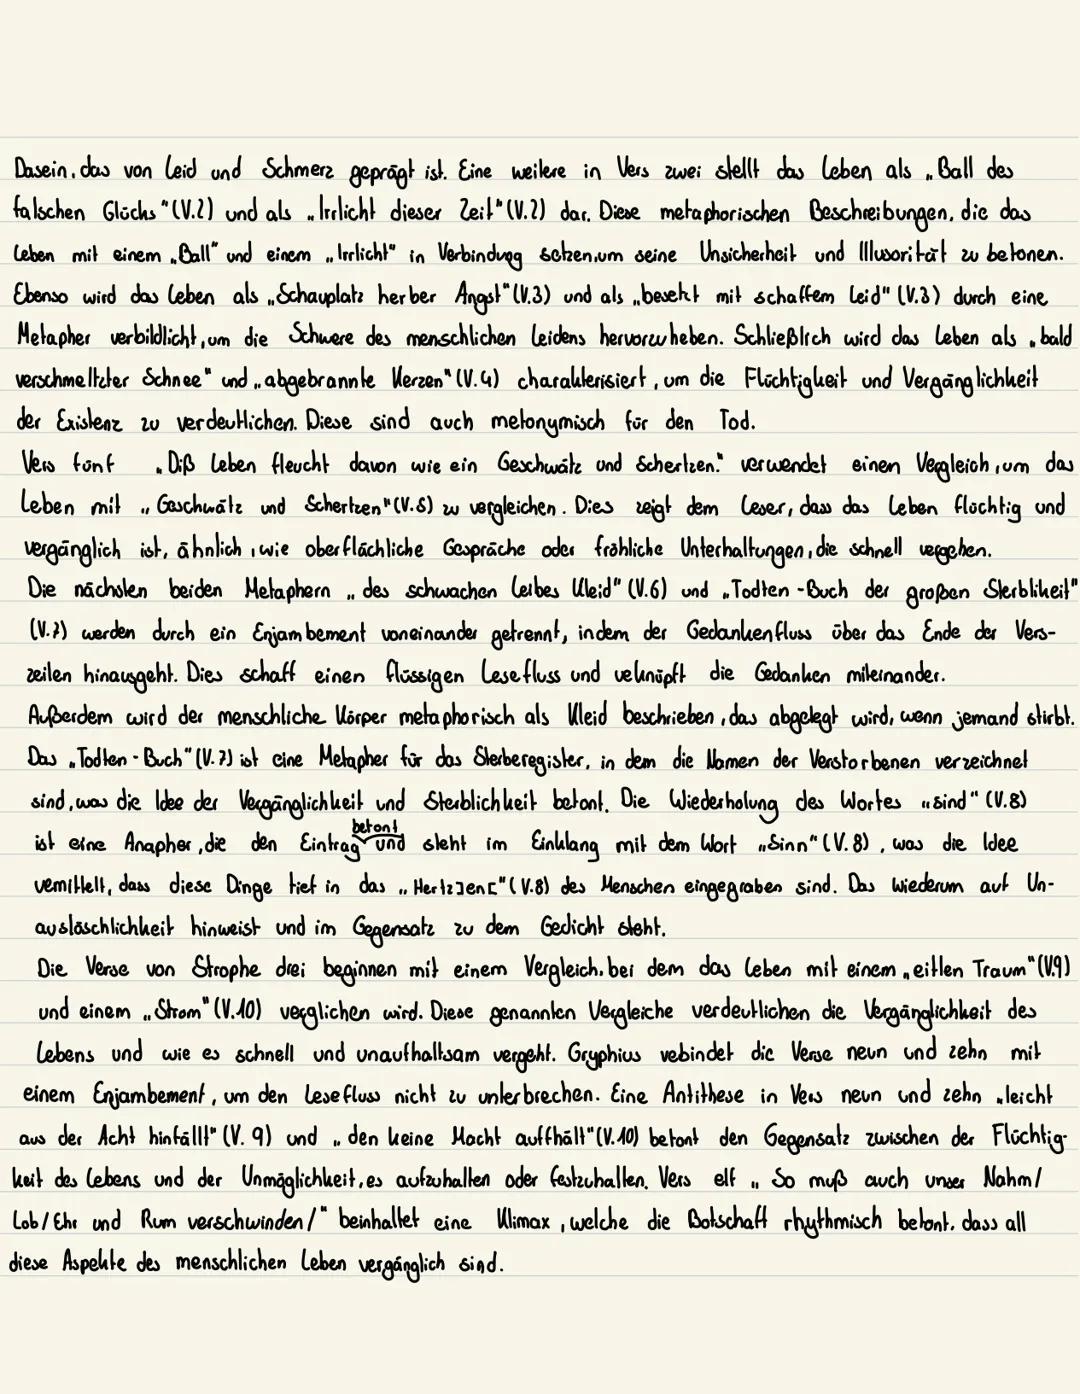 Dasein, das von Leid und Schmerz geprägt ist. Eine weitere in Vers zwei stellt das Leben als „Ball des
falschen Glücks"(V.2) und als „Irrlicht dieser Zeit"(V.2) dar. Diese metaphorischen Beschreibungen, die das
Leben mit einem „Ball" und einem „Irrlicht" in Verbindung setzen, um seine Unsicherheit und Illusorität zu betonen.
Ebenso wird das Leben als „Schauplatz herber Angst"(V.3) und als „besetzt mit schaffem Leid" (V.3) durch eine
Metapher verbildlicht, um die Schwere des menschlichen Leidens hervorzuheben. Schließlich wird das Leben als „bald
verschmeltzter Schnee" und „abgebrannte Kerzen"(V.4) charakterisiert, um die Flüchtigkeit und Vergänglichkeit
der Existenz zu verdeutlichen. Diese sind auch metonymisch für den Tod.
Vers fünf „Diß Leben fleucht davon wie ein Geschwätz und Schertzen." verwendet einen Vergleich, um das
Leben mit „Geschwätz und Schertzen"(V.5) zu vergleichen. Dies zeigt dem Leser, dass das Leben flüchtig und
vergänglich ist, ähnlich, wie oberflächliche Gespräche oder fröhliche Unterhaltungen, die schnell vergehen.
Die nächsten beiden Metaphern „des schwachen Leibes Kleid" (V.6) und „Todten-Buch der großen Sterblikeit"
(V.7) werden durch ein Enjambement voneinander getrennt, indem der Gedankenfluss über das Ende der Vers-
zeilen hinausgeht. Dies schaff einen flüssigen Lesefluss und veknüpft die Gedanken miteinander.
Außerdem wird der menschliche Körper metaphorisch als Kleid beschrieben, das abgelegt wird, wenn jemand stirbt.
Das „Todten-Buch"(V.7) ist eine Metapher für das Sterberegister, in dem die Namen der Verstorbenen verzeichnet
sind, was die Idee der Vergänglichkeit und Sterblichkeit betont. Die Wiederholung des Wortes „sind" (V.8)
ist eine Anapher, die den Eintrag betont und steht im Einklang mit dem Wort „Sinn"(V.8), was die Idee
vemittelt, dass diese Dinge tief in das „Hertz]en["(V.8) des Menschen eingegraben sind. Das wiederum auf Un-
auslöschlichkeit hinweist und im Gegensatz zu dem Gedicht steht.
Die Verse von Strophe drei beginnen mit einem Vergleich, bei dem das Leben mit einem „eitlen Traum"(V.9)
und einem „Strom"(V.10) verglichen wird. Diese genannten Vergleiche verdeutlichen die Vergänglichkeit des
Lebens und wie es schnell und unaufhaltsam vergeht. Gryphius vebindet die Verse neun und zehn mit
einem Enjambement, um den Lesefluss nicht zu unterbrechen. Eine Antithese in Vers neun und zehn „leicht
aus der Acht hinfällt"(V. 9) und „den keine Macht auffhält"(V.10) betont den Gegensatz zwischen der Flüchtig-
keit des Lebens und der Unmöglichkeit, es aufzuhalten oder festzuhalten. Vers elf „So muß auch unser Nahm/
Lob/Ehr und Rum verschwinden/" beinhaltet eine Klimax, welche die Botschaft rhythmisch betont, dass all
diese Aspekte des menschlichen Leben vergänglich sind.